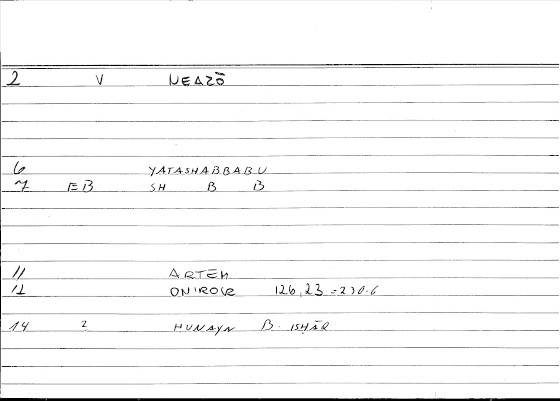 2 V NEAZŌ
6 YATASHABBABU
7 EB SH B B
11 ARTEM
12 ONIROCR 126,23 = 230.6
14 2 HUNAYN B. ISḤĀQ